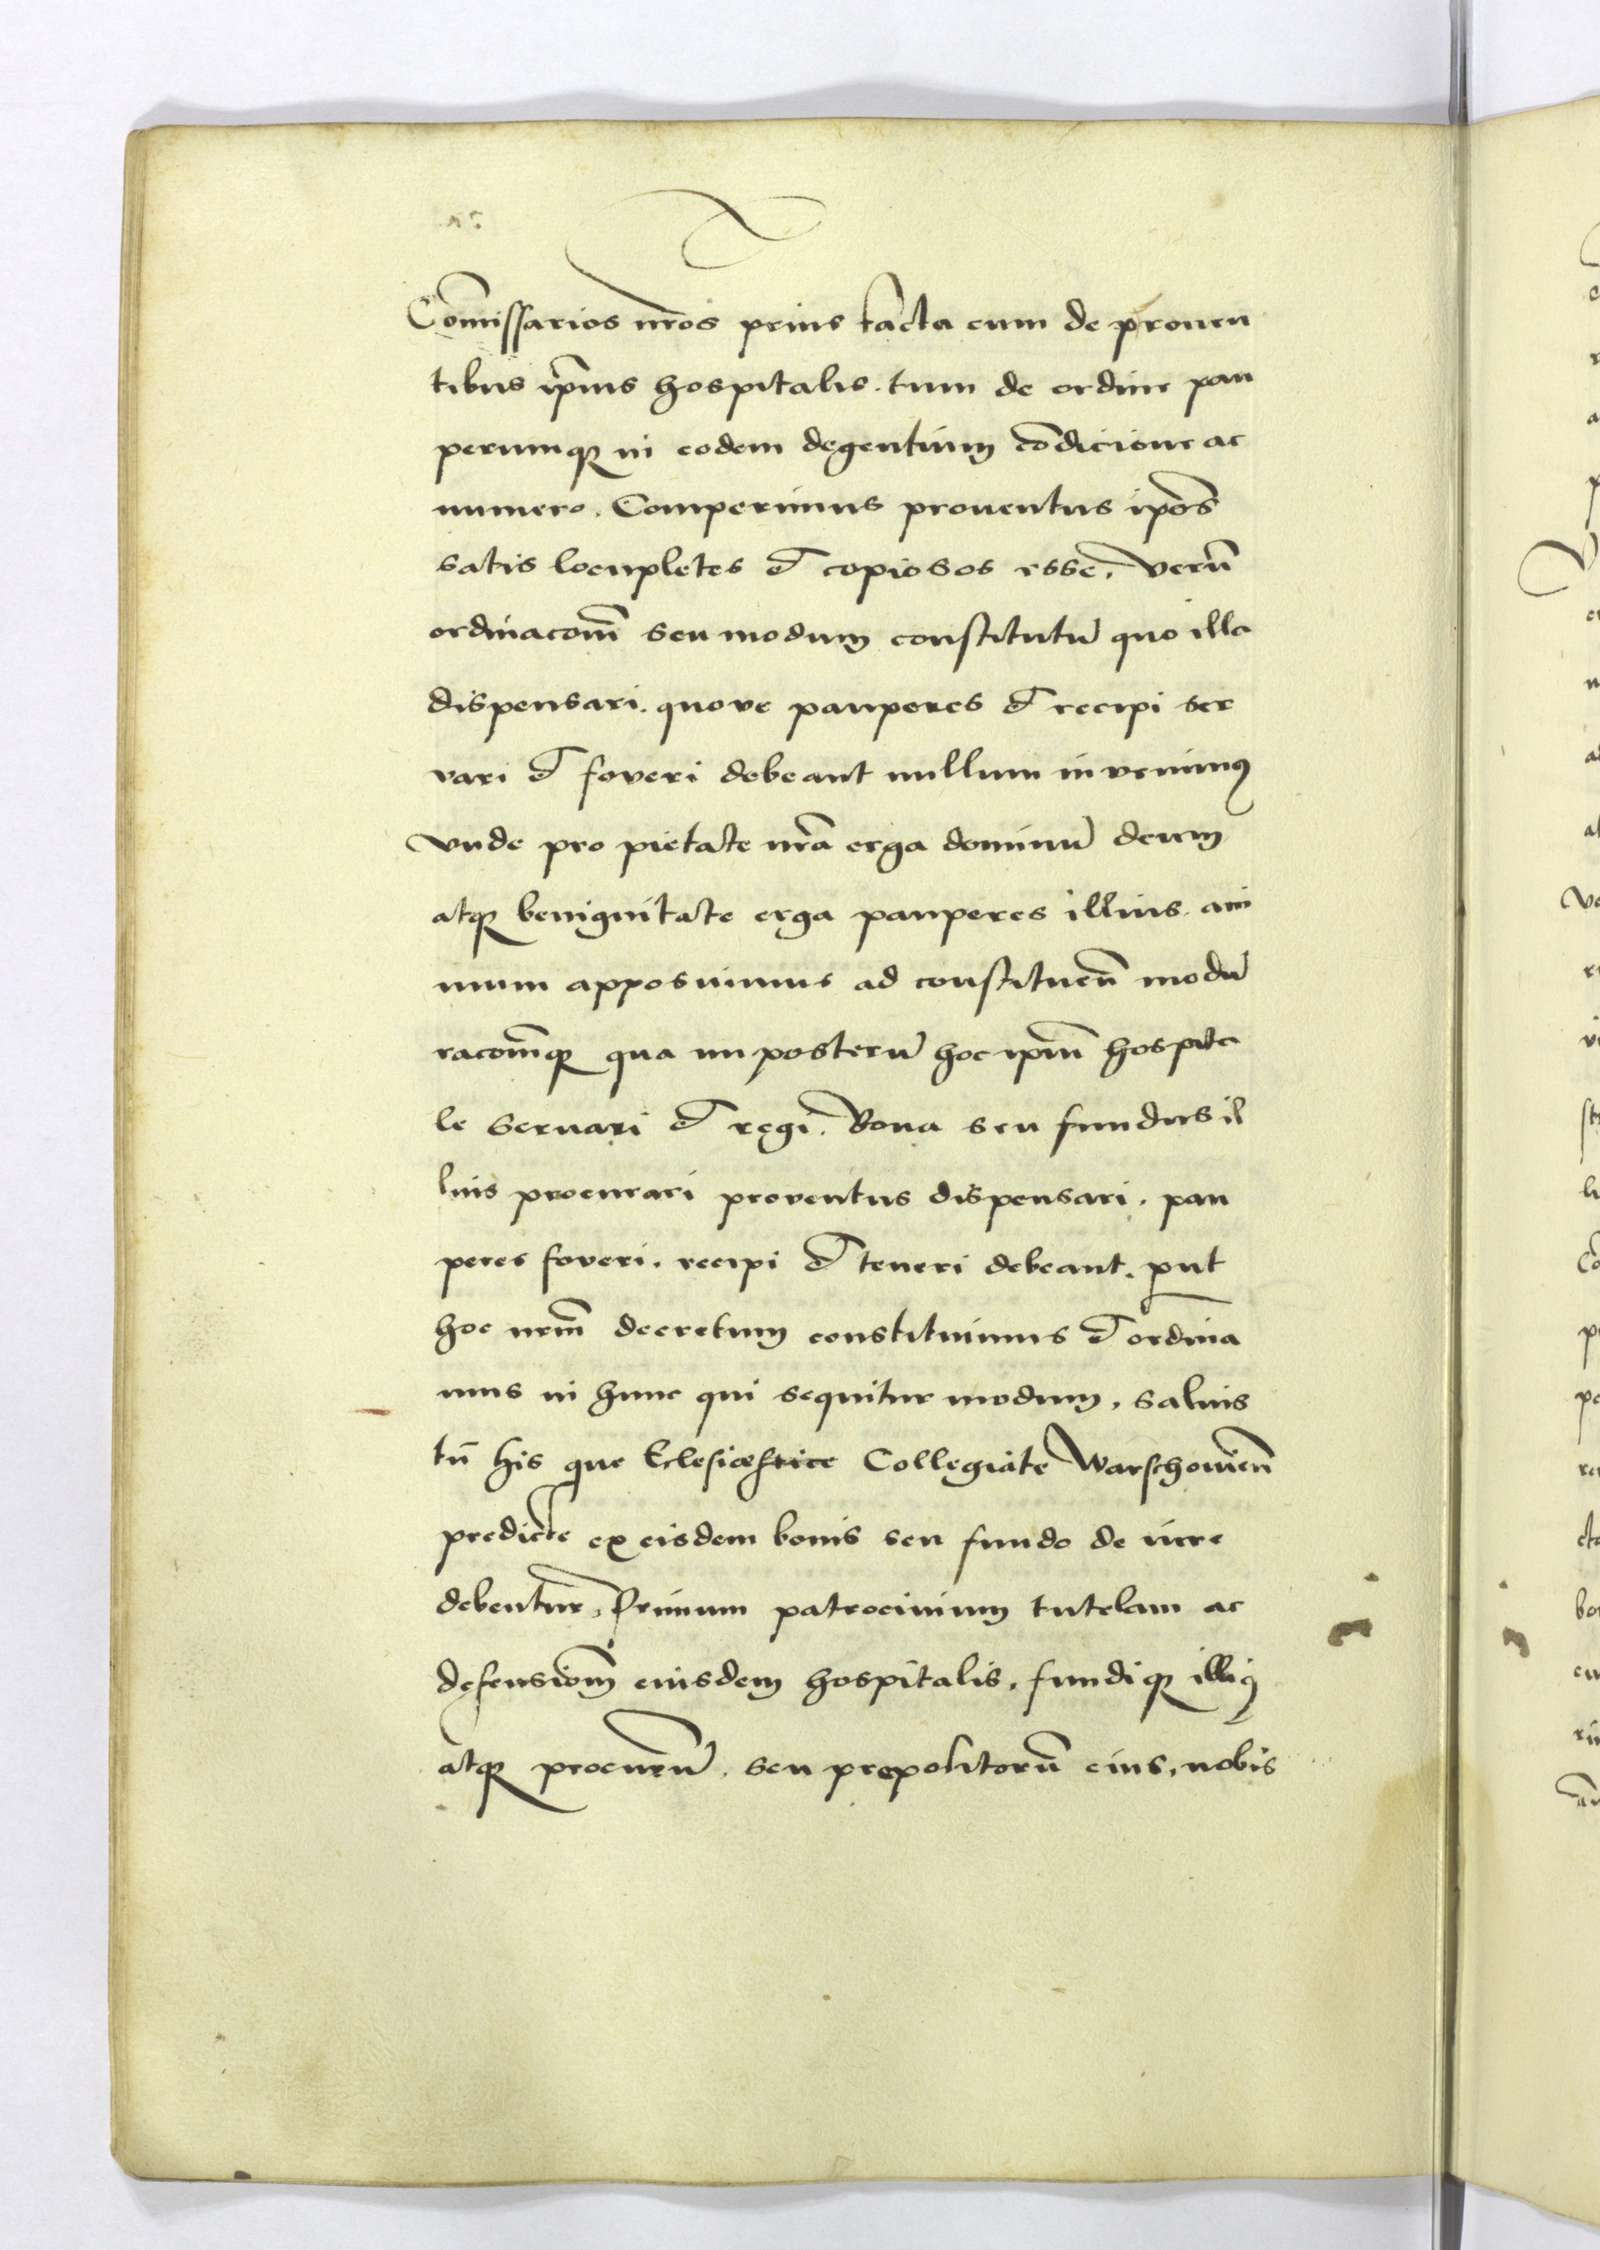 Com̃issarios nr̃os prius tacta cum de prouen
tibus ip̃ius hospitalis. tum de ordine pau
perumq̃ in eodem degentium cõdicione ac
numero. Comperimus prouentus ip̃os
satis locupletes et copiosos esse, Verũ
ordinacom̃ seu modum constitutũ quo illa
dispensari. quove pauperes et recipi ser
vari et foveri debeant nullum invenimus
Vnde pro pietate nr̃a erga dominũ deum
atq̃ benignitate erga pauperes illius. ani
mum apposuimus ad constituen̄ modũ
racom̃q̃ qua in posterũ hoc ip̃m̃ hospita
le seruari et regi. Bona seu fundus il
lius procurari proventus dispensari. pau
peres foveri. recipi et teneri debeant. put
hoc nr̃m̃ decretum constituimus et ordina
mus in hunc qui sequitur modum, saluis
tñ his que Eclesiæ Collegiate Warschovien̄
predicte ex eisdem bonis seu fundo de iure
debentur, Primum patrocinium tutelam ac
defensiom̃ eiusdem hospitalis, fundiq̃ illius
atq̃ seu prepositorũ eius, nobis